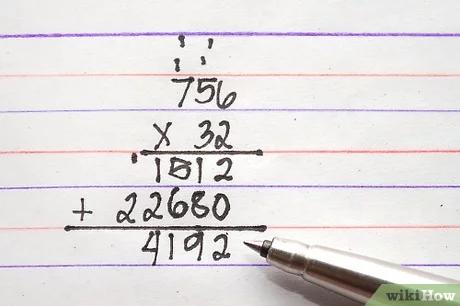 1 1
1 1
756
x 32
1
1512
+ 22680
4192
wikiHow